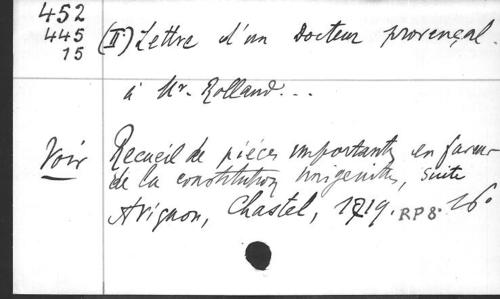 452
445
15
(II) Lettre d'un Docteur provençal.
à Mr. Rolland...
Voir
Recueil de pièces importantes en faveur
de la constitution Unigenitus, suite
Avignon, Chastel, 1719. RP8. 16°